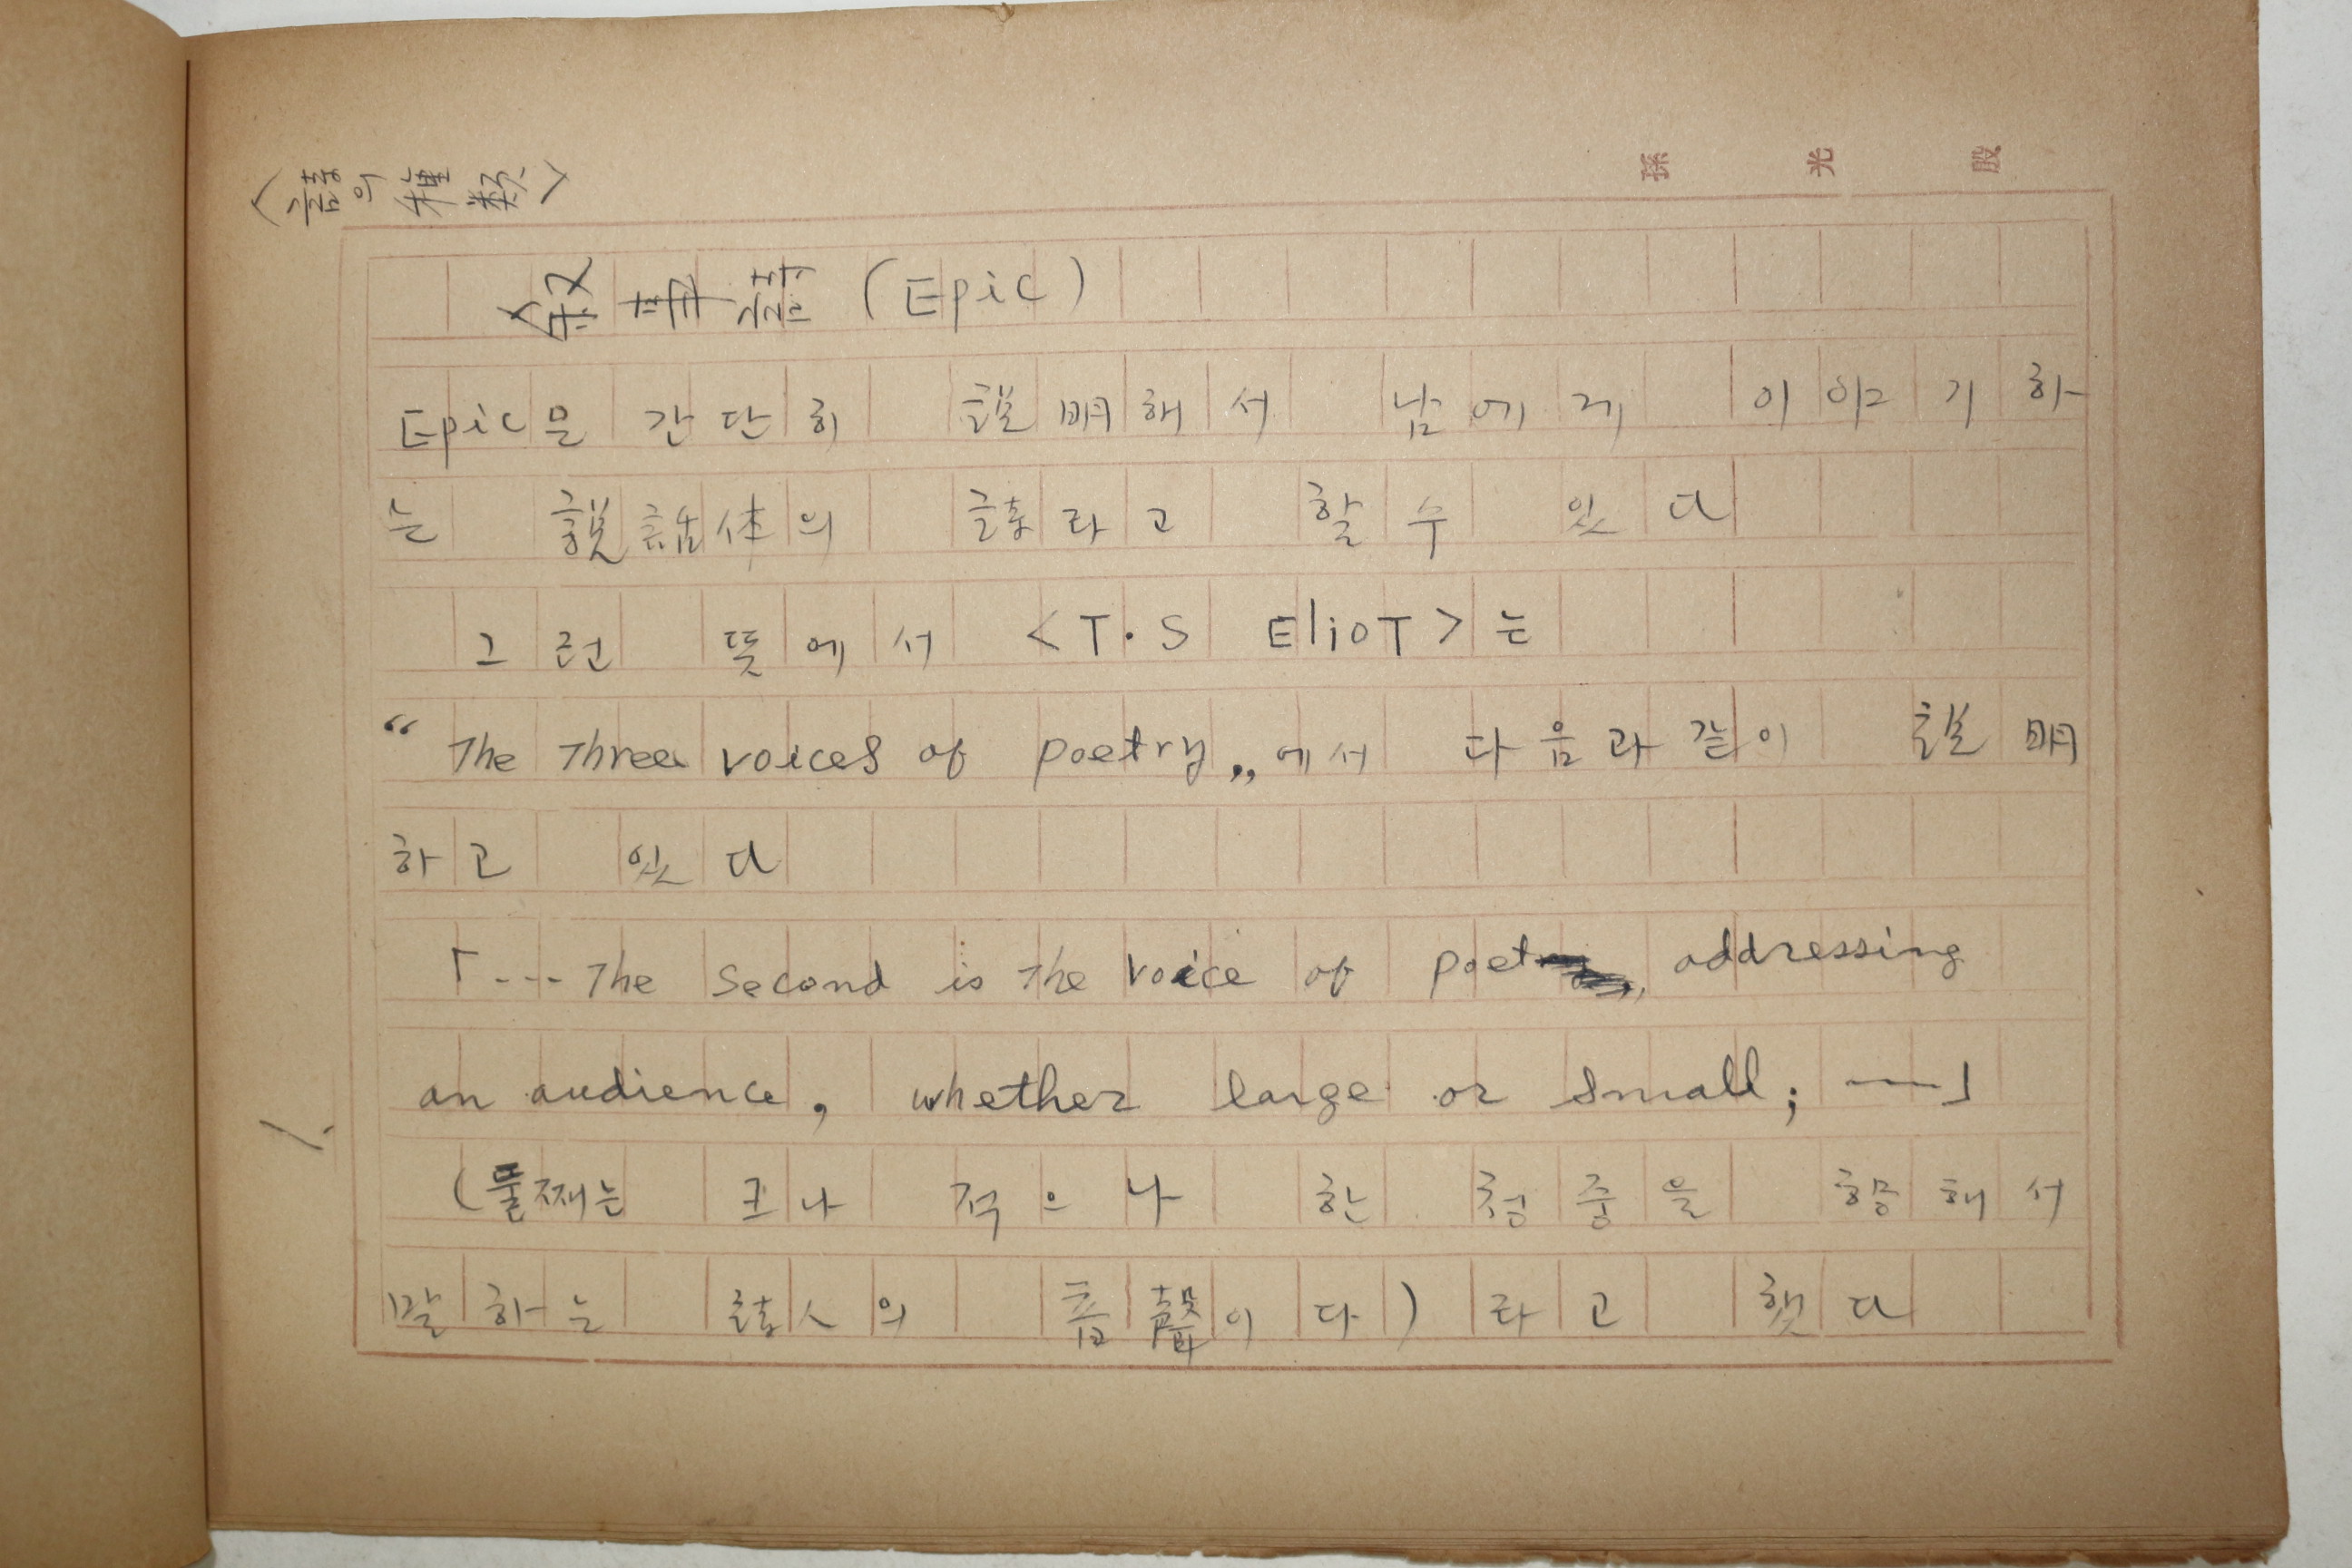 孫光殷
<詩의 種類>
敍事詩 (Epic)
Epic은 간단히 說明해서 남에게 이야기하
는 說話体의 詩라고 할 수 있다
그런 뜻에서 <T·S ElioT>는
“The Three voices of poetry„에서 다음과 같이 說明
하고 있다
「---The second is The voice of poet, addressing
an audience, whether large or small; ―」
(둘째는 크나 적으나 한 청중을 향해서
말하는 詩人의 音聲이다) 라고 했다